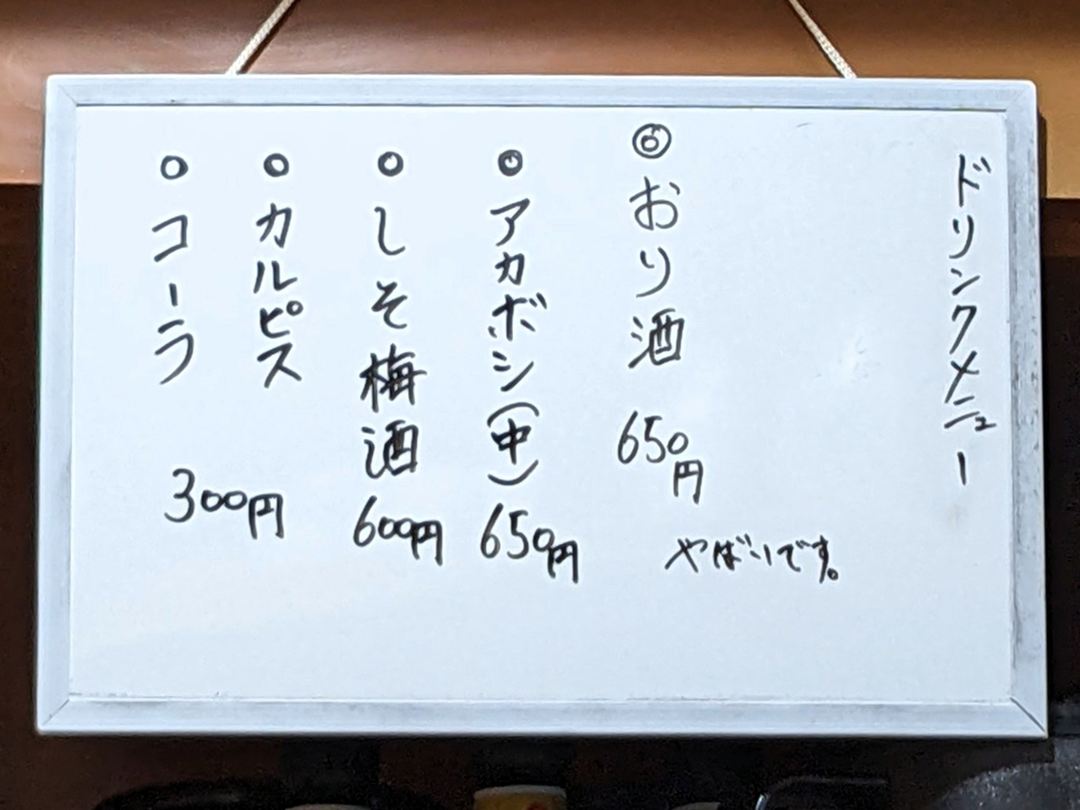 ドリンクメニュー
◎おり酒 650円
やばいです。
○アカボシ(中) 650円
○しそ梅酒 600円
○カルピス
○コーラ
300円